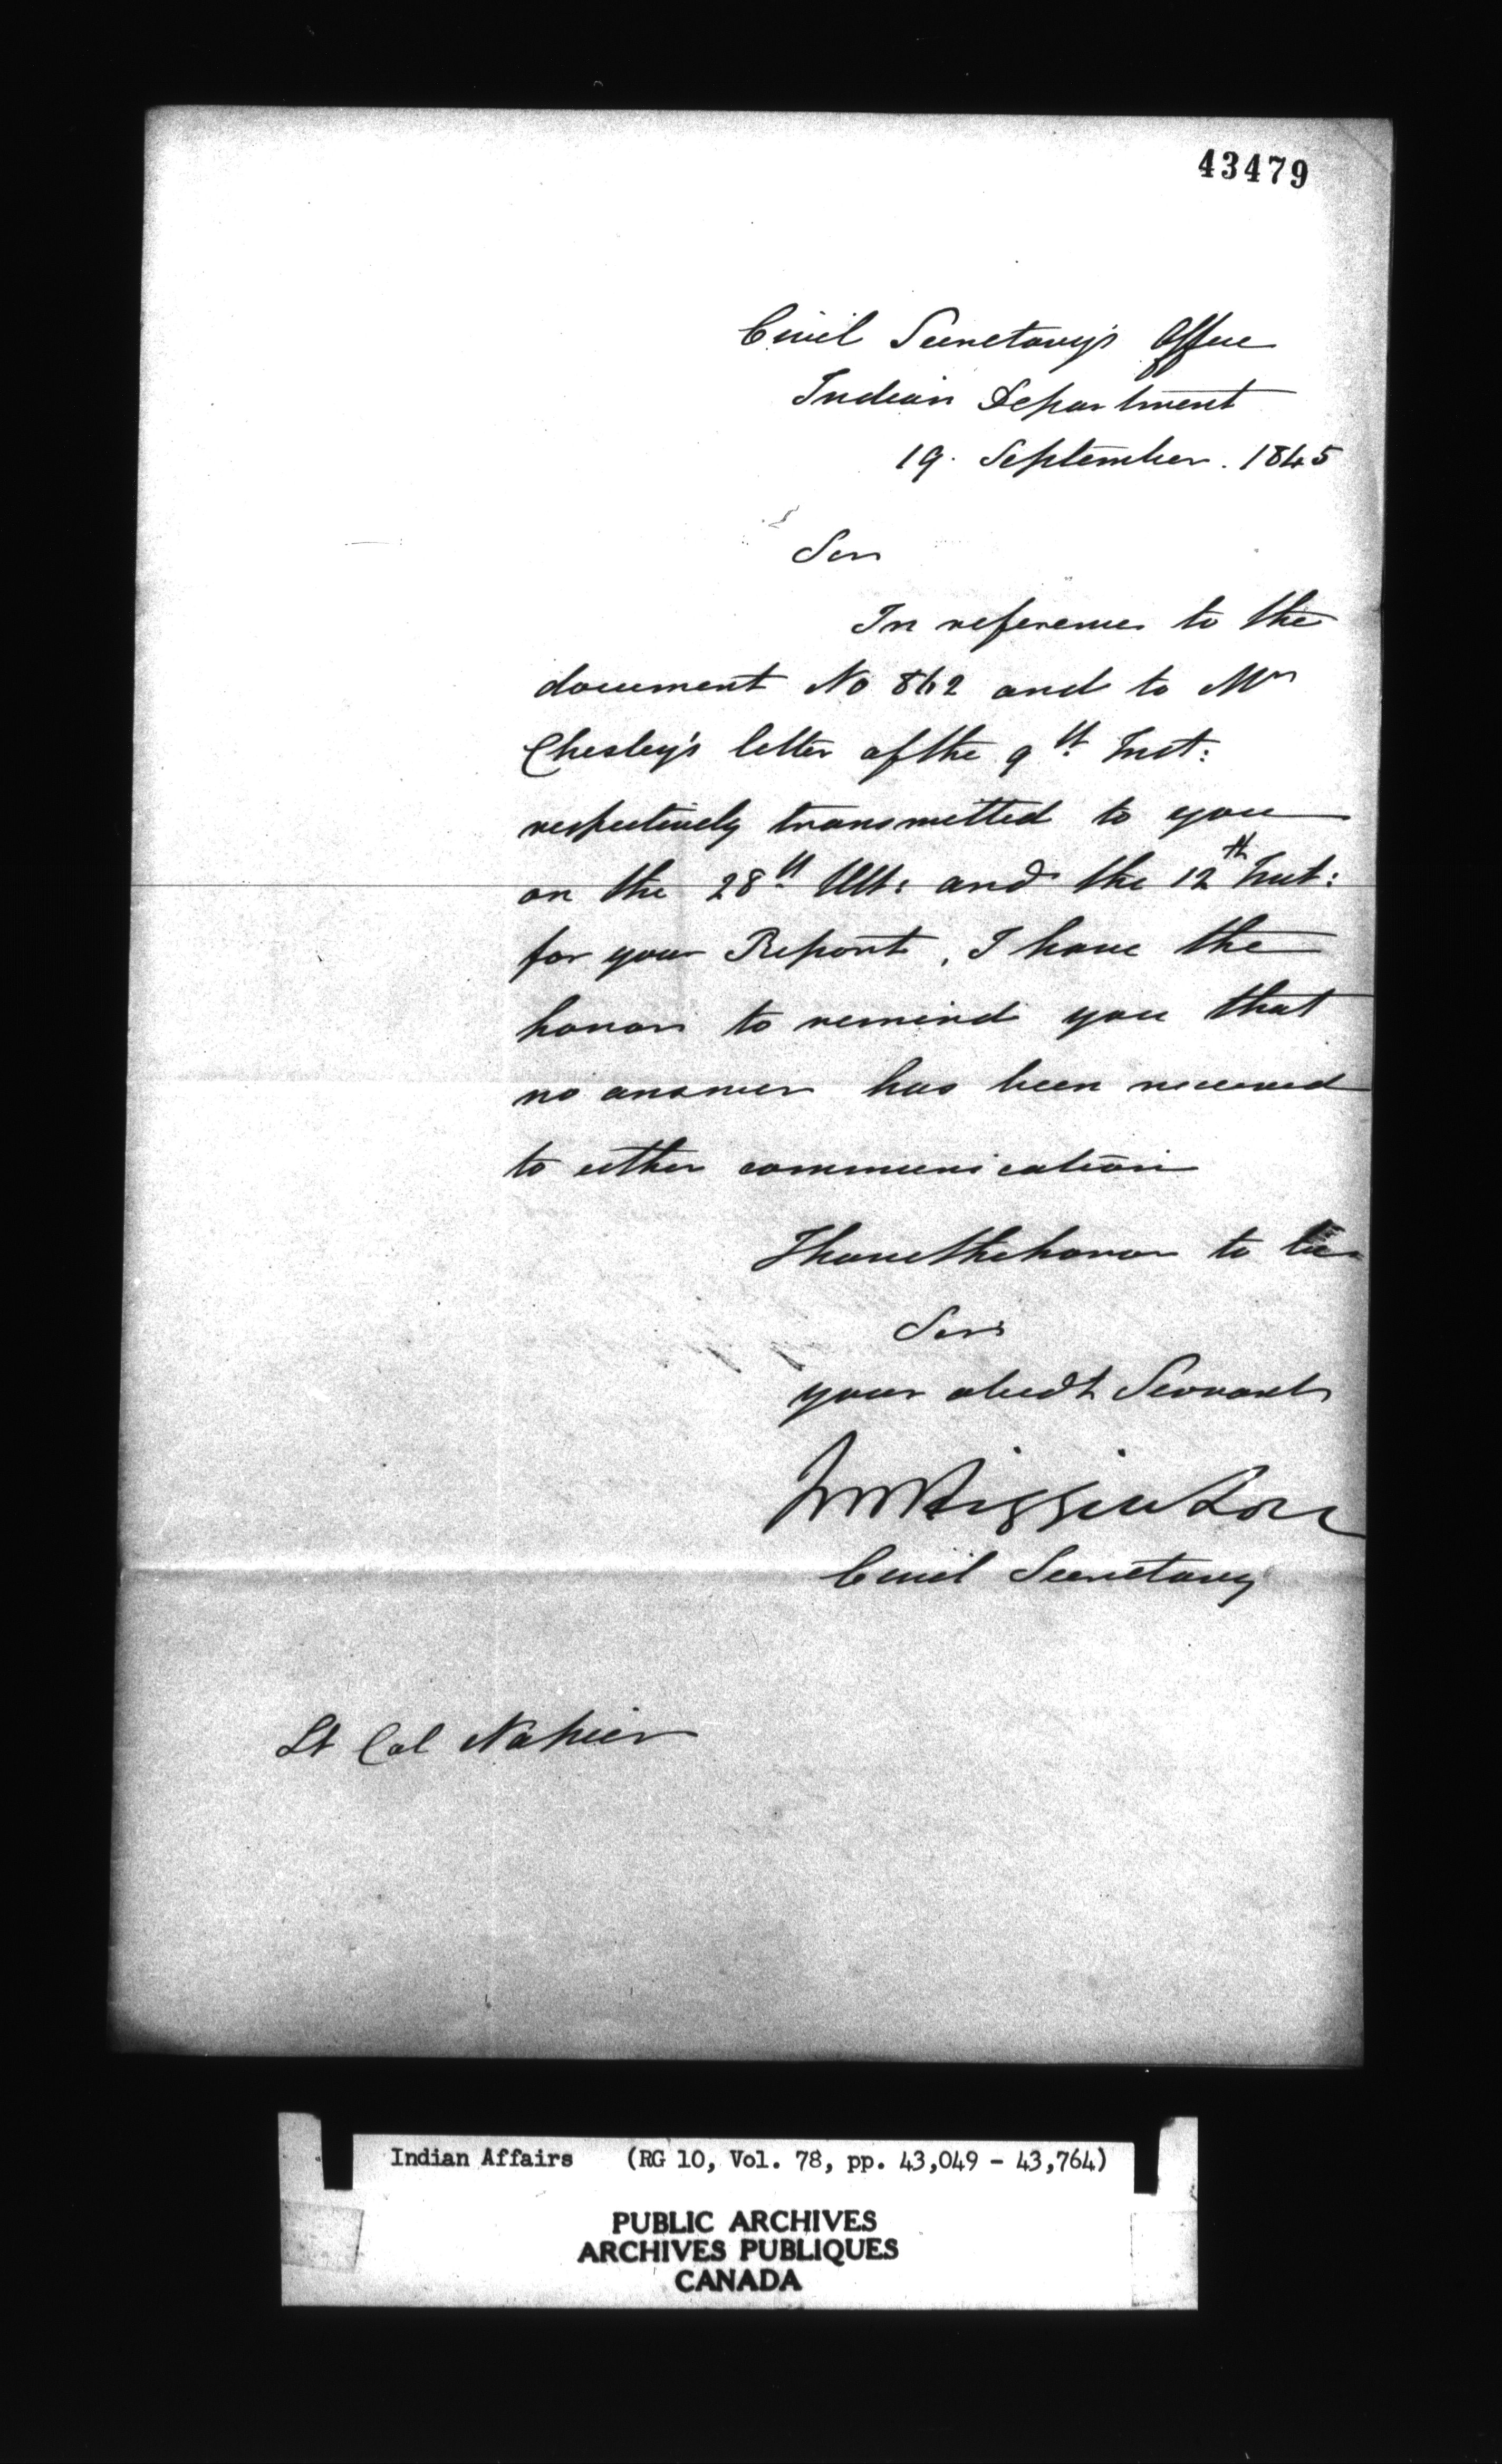 43479
Civil Secretary's Office
Indian Department
19. September. 1845
Sir
In reference to the
document No 862 and to Mr
Chesley's letter of the 9th Inst:
respectively transmitted to you
on the 28th Ult: and the 12th Inst:
for your Report, I have the
honor to remind you that
no answer has been received
to either communication
I have the honor to be
Sir
your obedt Servant
JM Higginson
Civil Secretary
Lt Col Napier
Indian Affairs (RG 10, Vol. 78, pp. 43,049 - 43,764)
PUBLIC ARCHIVES
ARCHIVES PUBLIQUES
CANADA